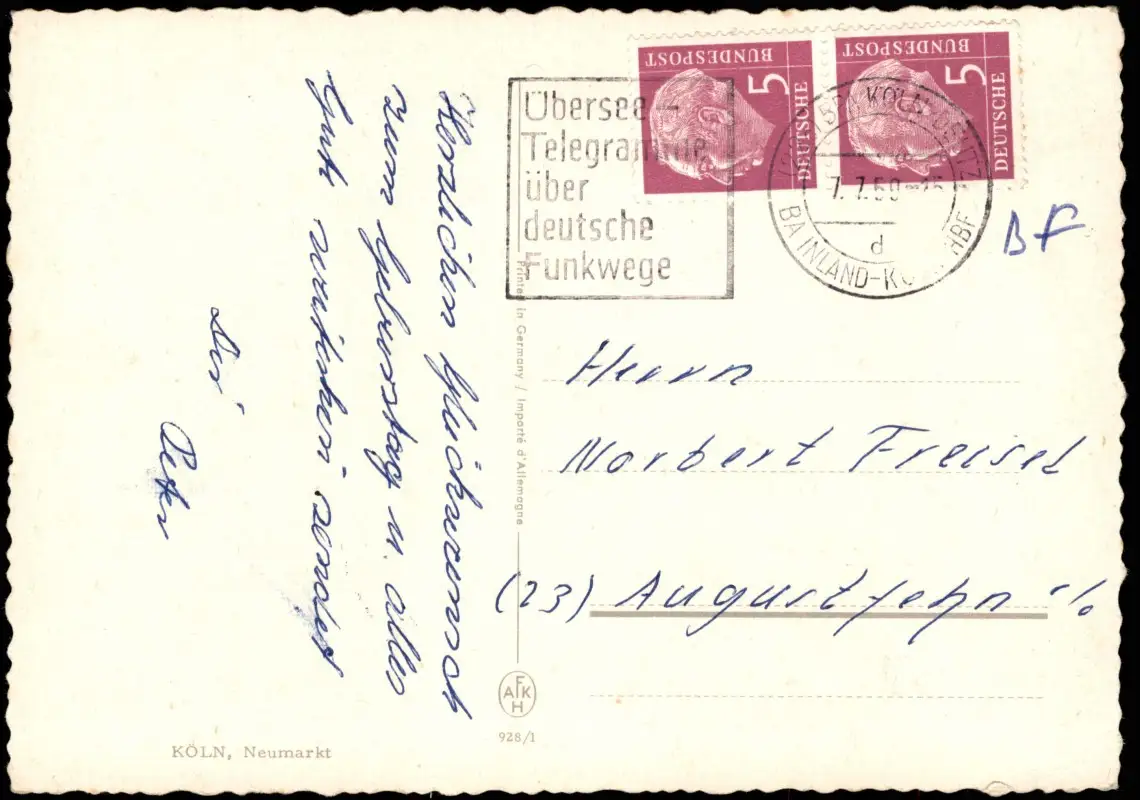 Herzlichen Glückwunsch
zum Geburstag u. alles
Gute nachträglich sendet
Dir
Peter
KÖLN, Neumarkt
Printed in Germany / Importé d'Allemagne
AFKH
928/1
Übersee-
Telegramme
über
deutsche
Funkwege
DEUTSCHE
BUNDESPOST
5
DEUTSCHE
BUNDESPOST
5
KÖLN-DEUTZ
7.7.59
d
BA INLAND-KÖLN HBF
BF
Herrn
Norbert Freisel
(23) Augustfehn